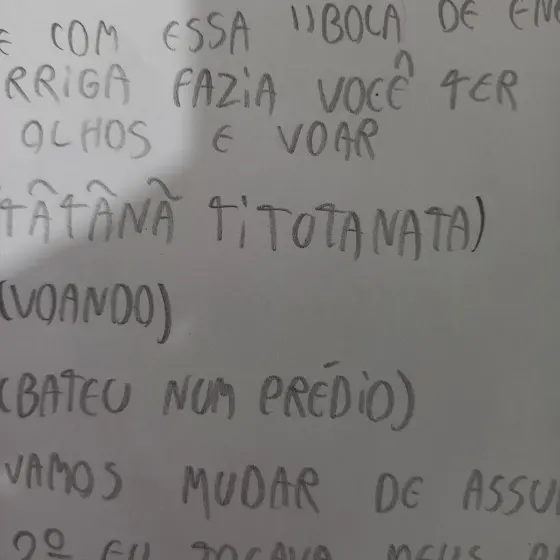 E COM ESSA "BOLA DE ENE
RRIGA FAZIA VOCÊ TER
OLHOS E VOAR
TÂTÂNÃ TITOTANATA)
(VOANDO)
(BATEU NUM PRÉDIO)
VAMOS MUDAR DE ASSU
2º EU JOGAVA MEUS